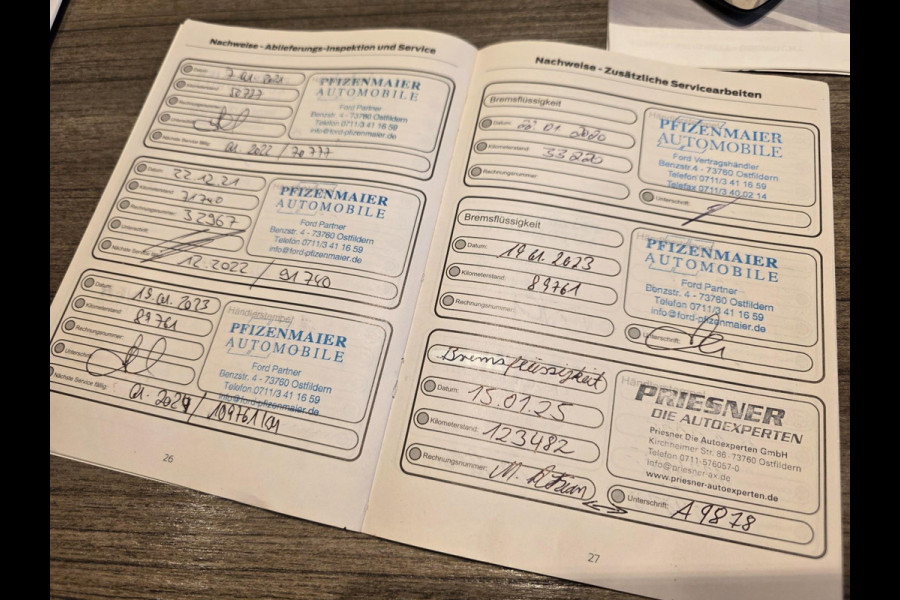 Nachweise - Ablieferungs-Inspektion und Service
Datum: 7.01.2021
Kilometerstand: 50777
Rechnungsnummer:
Unterschrift:
Nächste Service fällig: 01.2022 / 70777
PFIZENMAIER
AUTOMOBILE
Ford Partner
Benzstr. 4 - 73760 Ostfildern
Telefon 0711/3 41 16 59
info@ford-pfizenmaier.de
Datum: 22.12.21
Kilometerstand: 71740
Rechnungsnummer: 32967
Unterschrift:
Nächste Service fällig: 12.2022 / 91740
PFIZENMAIER
AUTOMOBILE
Ford Partner
Benzstr. 4 - 73760 Ostfildern
Telefon 0711/3 41 16 59
info@ford-pfizenmaier.de
Datum: 19.01.2023
Kilometerstand: 89761
Rechnungsnummer:
Unterschrift:
Nächste Service fällig: 01.2024 / 109761
Händlerstempel
PFIZENMAIER
AUTOMOBILE
Ford Partner
Benzstr. 4 - 73760 Ostfildern
Telefon 0711/3 41 16 59
info@ford-pfizenmaier.de
26
Nachweise - Zusätzliche Servicearbeiten
Bremsflüssigkeit
Datum: 01 2020
Kilometerstand: 33220
Rechnungsnummer:
PFIZENMAIER
AUTOMOBILE
Ford Vertragshändler
Benzstr. 4 - 73760 Ostfildern
Telefon 0711/3 41 16 59
Telefax 0711/3 40 02 14
Unterschrift:
Bremsflüssigkeit
Datum: 19.01.2023
Kilometerstand: 89761
Rechnungsnummer:
PFIZENMAIER
AUTOMOBILE
Ford Partner
Benzstr. 4 - 73760 Ostfildern
Telefon 0711/3 41 16 59
info@ford-pfizenmaier.de
Unterschrift:
Bremsflüssigkeit
Datum: 15.01.25
Kilometerstand: 123482
Rechnungsnummer: M.
PRIESNER
DIE AUTOEXPERTEN
Priesner Die Autoexperten GmbH
Kirchheimer Str. 86 - 73760 Ostfildern
Telefon 0711-576057-0
info@priesner-ax.de
www.priesner-autoexperten.de
Unterschrift: A9878
27